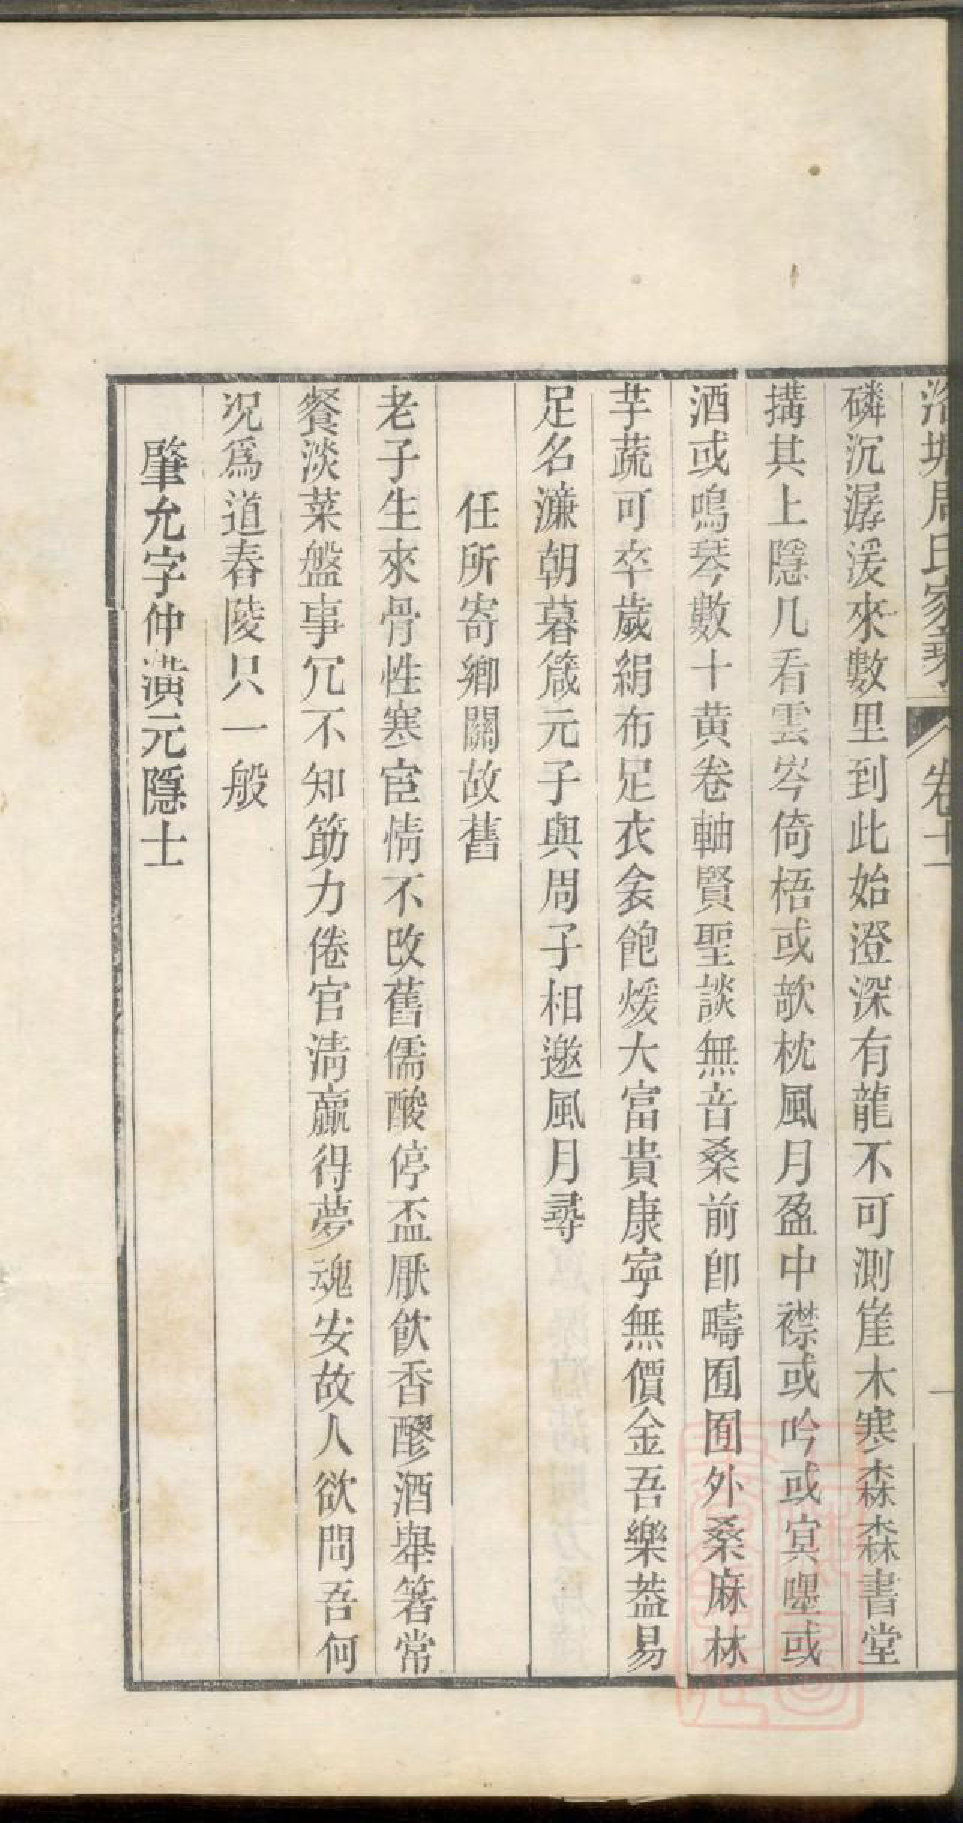 洛塘周氏家乘 卷十一
磷沉潺湲來數里到此始澄深有龍不可測崖木寒森森書堂
搆其上隱几看雲岑倚梧或欹枕風月盈中襟或吟或寘嚜或
酒或鳴琴數十黃卷軸賢聖談無音桑前卽疇囿囿外桑麻林
芋蔬可卒歲絹布足衣衾飽煖大富貴康寧無價金吾樂葢易
足名濂朝暮箴元子與周子相邀風月尋
任所寄鄉關故舊
老子生來骨性寒宦情不改舊儒酸停盃厭飲香醪酒舉箸常
餐淡菜盤事冗不知筋力倦官淸贏得夢魂安故人欲問吾何
况爲道舂陵只一般
肇允字仲潢元隱士